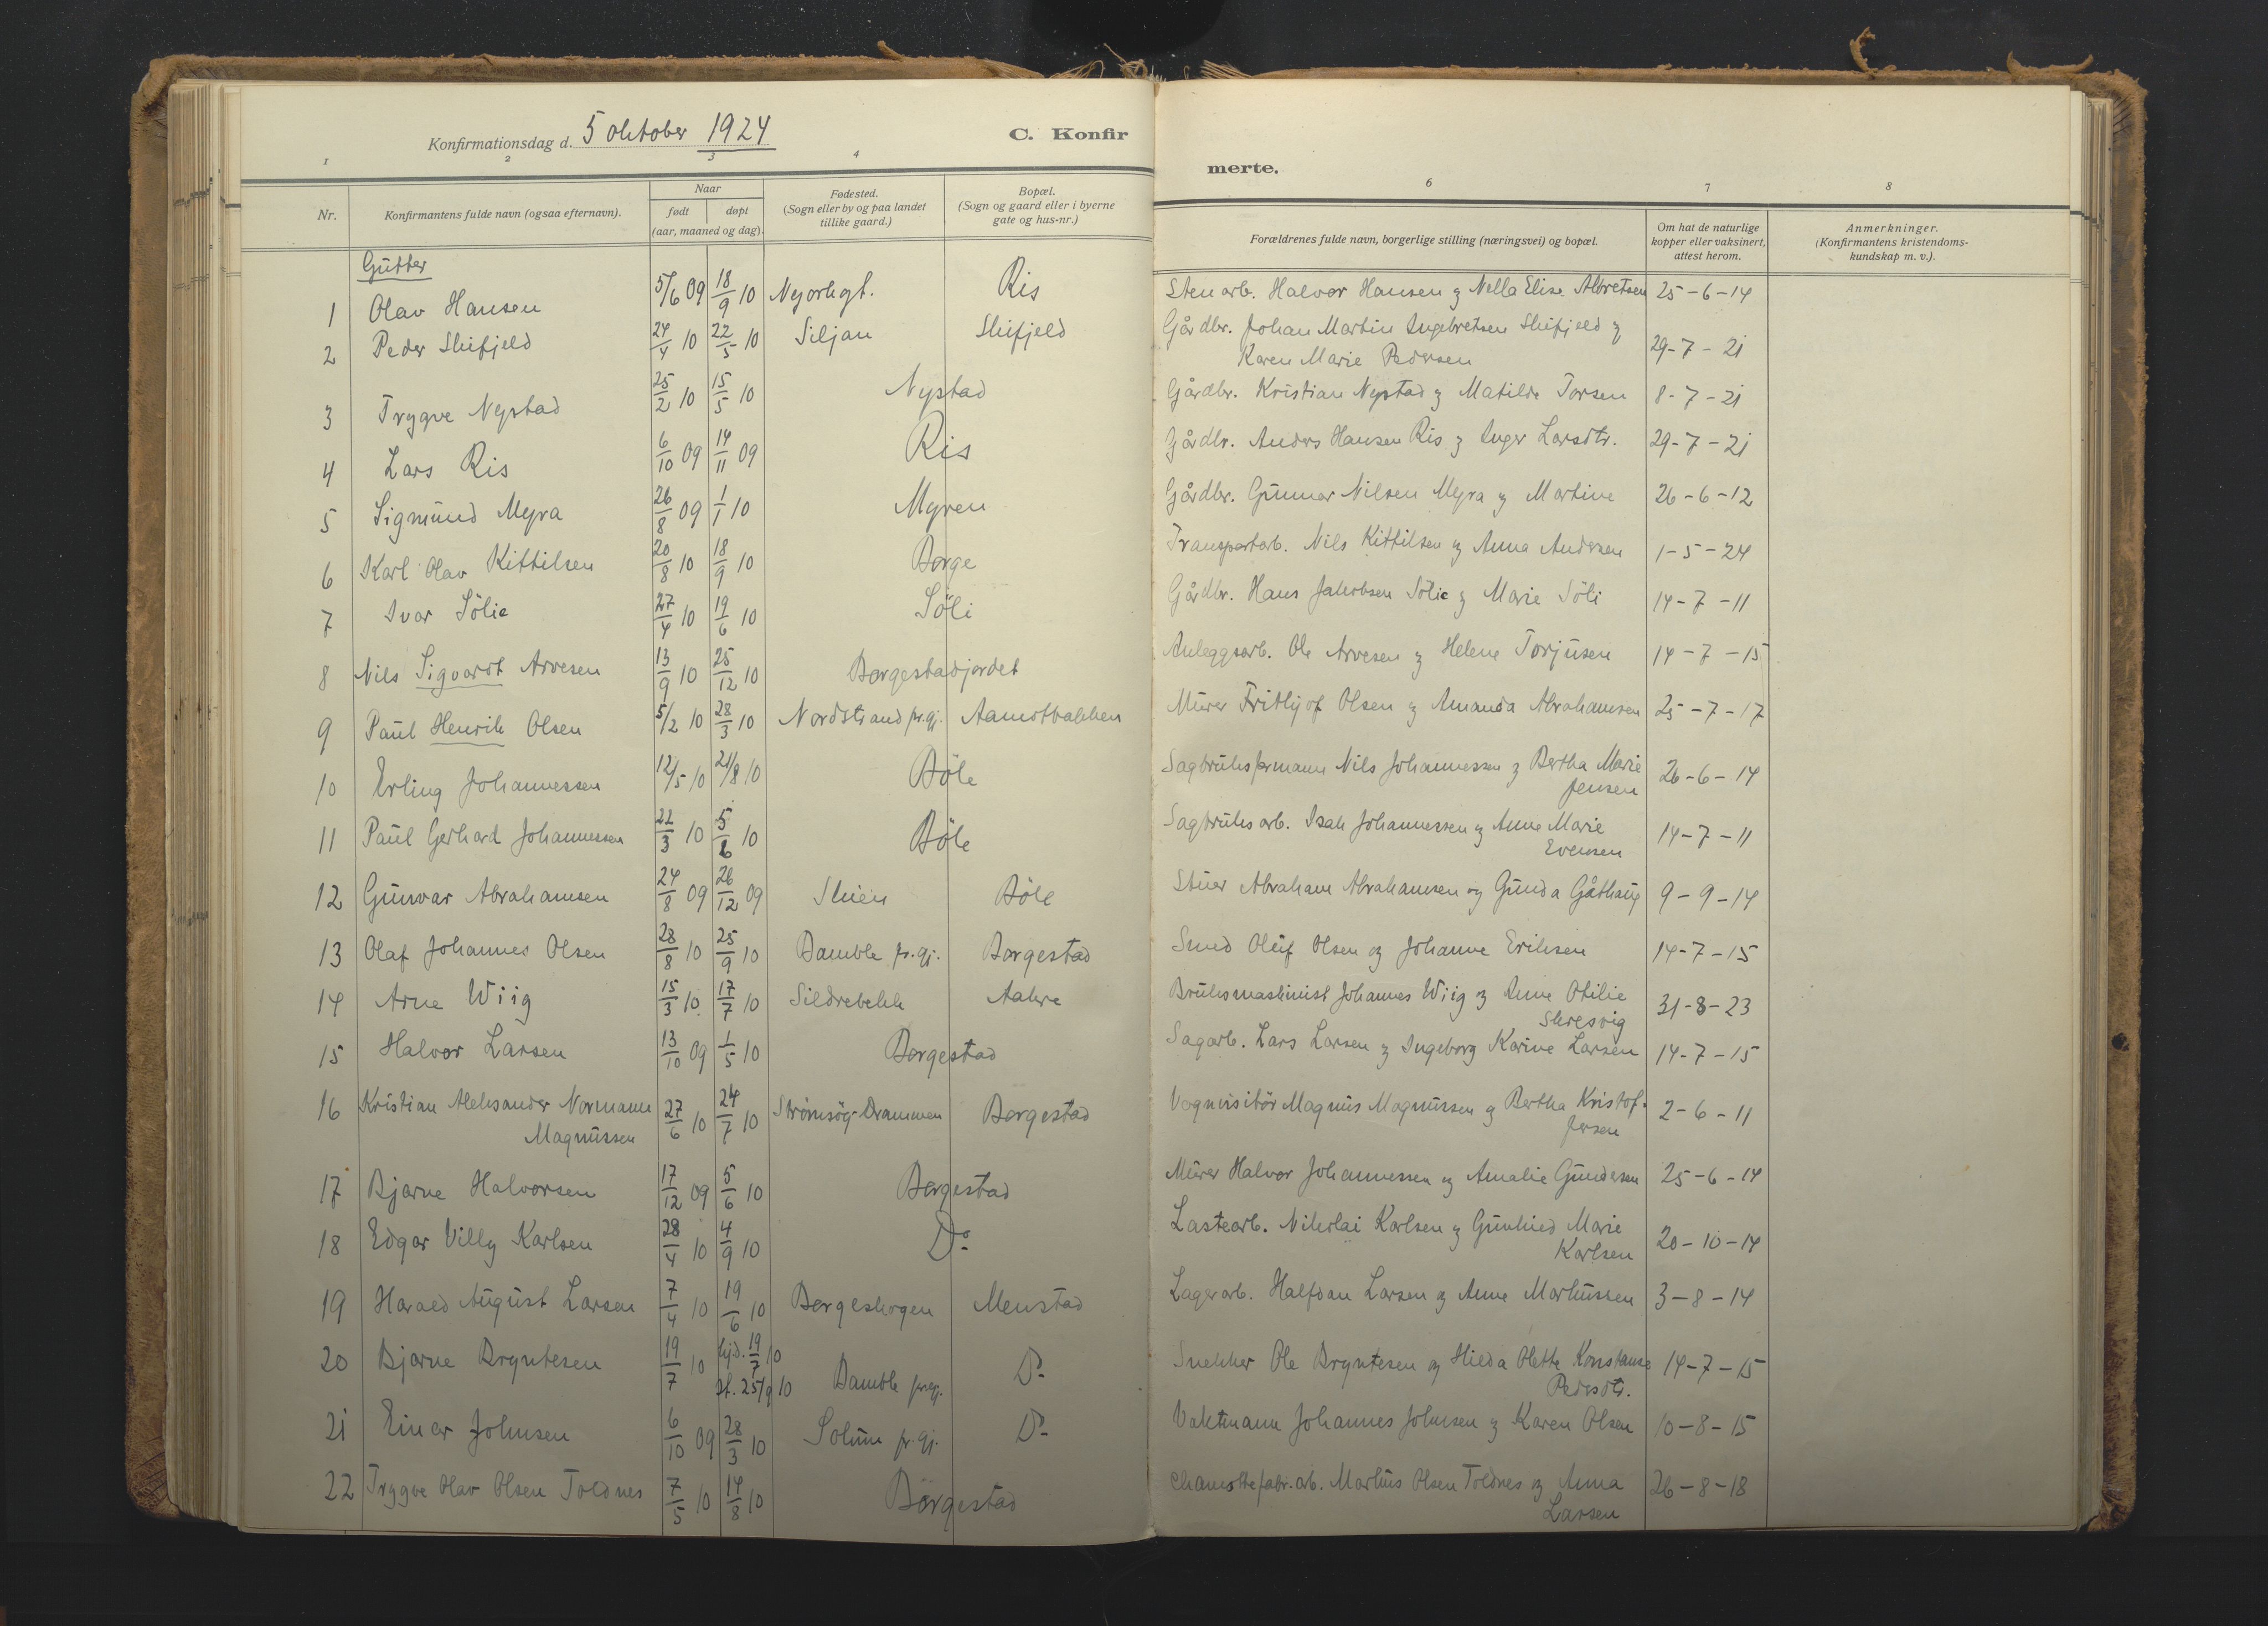 Konfirmationsdag d. 5 oktober 1924
C. Konfir
merte.
1 2 3 4 6 7 8
Nr.
Konfirmantens fulde navn (ogsaa efternavn).
Naar
født døpt
(aar, maaned og dag).
Fødested.
(Sogn eller by og paa landet
tillike gaard.)
Bopæl.
(Sogn og gaard eller i byerne
gate og hus-nr.)
Forældrenes fulde navn, borgerlige stilling (næringsvei) og bopæl.
Om hat de naturlige
kopper eller vaksinert,
attest herom.
Anmerkninger.
(Konfirmantens kristendoms-
kundskap m. v.).
Gutter
1 Olav Hansen 5/6 09 18/9 10 Nyorligt. Ris Stenarb. Halvor Hansen og Nella Elise Albretsen 25-6-14
2 Peder Skifjeld 24/4 10 22/5 10 Siljan Skifjeld Gårdbr. Johan Martin Ingebretsen Skifjeld og
Karen Marie Pedersen 29-7-21
3 Trygve Nystad 25/2 10 15/5 10 Nystad Gårdbr. Kristian Nystad og Matilde Torsen 8-7-21
4 Lars Ris 6/10 09 14/11 09 Ris Gårdbr. Anders Hansen Ris og Inger Larsdtr. 29-7-21
5 Sigmund Myra 26/8 09 1/1 10 Myren Gårdbr. Gunnar Nilsen Myra og Martine 26-6-12
6 Karl Olav Kittilsen 20/8 10 18/9 10 Borge Transportarb. Nils Kittilsen og Anna Andersen 1-5-24
7 Ivar Sölie 27/4 10 19/6 10 Söli Gårdbr. Hans Jakobsen Sölie og Marie Söli 14-7-11
8 Nils Sigvardt Arvesen 13/9 10 25/12 10 Borgestadjordet Anleggsarb. Ole Arvesen og Helene Torjusen 14-7-15
9 Paul Henrik Olsen 5/2 10 28/3 10 Nordstrand pr.gj. Aamotbakken Murer Frithjof Olsen og Amanda Abrahamsen 25-7-17
10 Erling Johannessen 12/5 10 21/8 10 Böle Sagbruksformann Nils Johannessen og Bertha Marie
Jensen 26-6-14
11 Paul Gerhard Johannessen 22/3 10 5/6 10 Böle Sagbruksarb. Isak Johannessen og Anne Marie
Evensen 14-7-11
12 Gunvar Abrahamsen 24/8 09 26/12 09 Skien Böle Stuer Abraham Abrahamsen og Gunda Gåthaug 9-9-14
13 Olaf Johannes Olsen 28/8 10 25/9 10 Bamble pr.gj. Borgestad Smed Oluf Olsen og Johanne Eriksen 14-7-15
14 Arne Wiig 15/3 10 17/7 10 Sildrebekk Aakre Bruksmaskinist Johannes Wiig og Anne Otilie
Skresvig 31-8-23
15 Halvor Larsen 13/10 09 1/5 10 Borgestad Sagarb. Lars Larsen og Ingeborg Karine Larsen 14-7-15
16 Kristian Aleksander Normann
Magnussen 27/6 10 24/7 10 Strömsög-Drammen Borgestad Vognvisitör Magnus Magnussen og Bertha Kristof-
fersen 2-6-11
17 Bjarne Halvorsen 17/12 09 5/6 10 Borgestad Murer Halvor Johannessen og Amalie Gundersen 25-6-14
18 Edgar Villy Karlsen 28/4 10 4/9 10 Do Lastearb. Nikolai Karlsen og Gunhild Marie
Karlsen 20-10-14
19 Harald August Larsen 7/4 10 19/6 10 Borgeskogen Menstad Lagerarb. Halfdan Larsen og Anne Markussen 3-8-14
20 Bjarne Bryntesen 19/7 10 hjd. 19/7 10
st. 25/9 10 Bamble pr.gj. Do Snekker Ole Bryntesen og Hilda Olette Konstanse
Pedersdtr. 14-7-15
21 Einar Johnsen 6/10 09 28/3 10 Solum pr.gj. Do Vaktmann Johannes Johnsen og Karen Olsen 10-8-15
22 Trygve Olav Olsen Toldnes 7/5 10 14/8 10 Borgestad Chamottefabr.arb. Markus Olsen Toldnes og Anna
Larsen 26-8-18